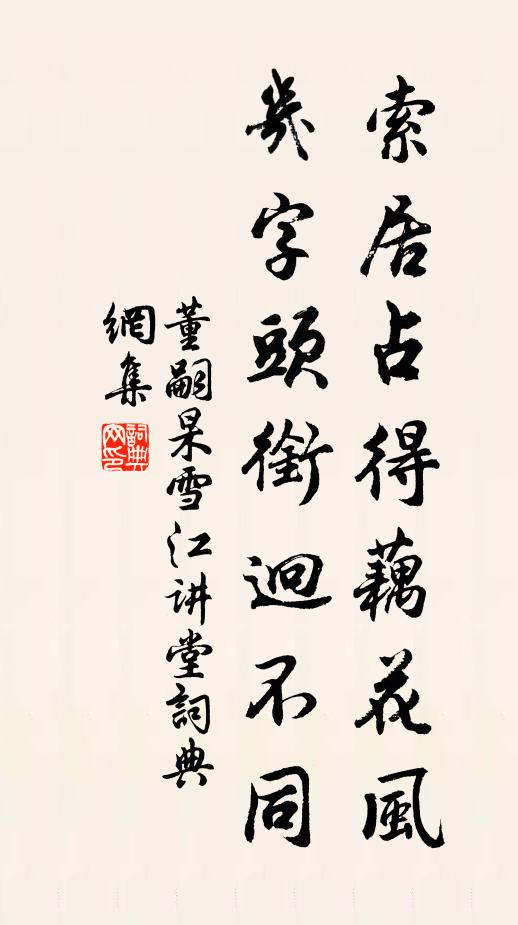 索居占得藕花風
幾字頭銜迥不同
董嗣杲雪江讲堂詞典
網集
詞典網印